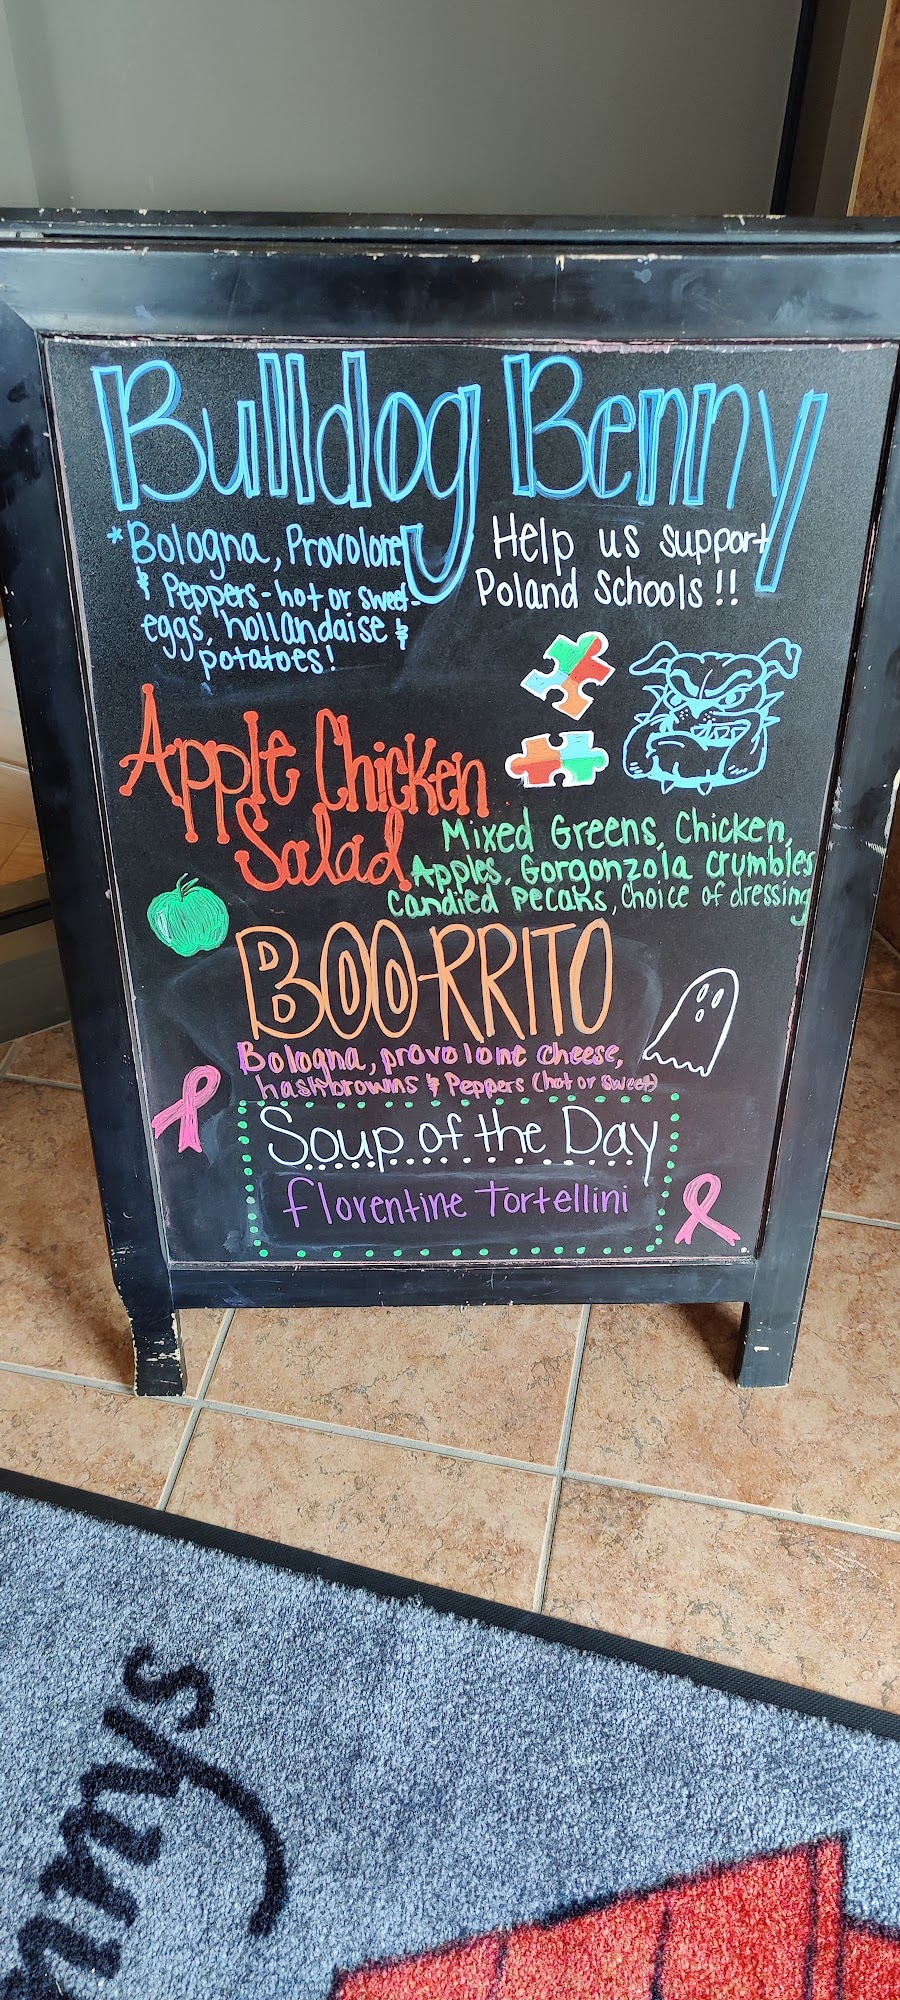 Bulldog Benny
*Bologna, Provolone
& Peppers - hot or sweet -
eggs, hollandaise &
potatoes!
Help us support
Poland Schools!!
Apple Chicken
Salad
Mixed Greens, Chicken,
Apples, Gorgonzola crumbles
candied pecans, choice of dressing
BOO-RRITO
Bologna, provolone cheese,
hashbrowns & Peppers (hot or sweet)
Soup of the Day
florentine Tortellini